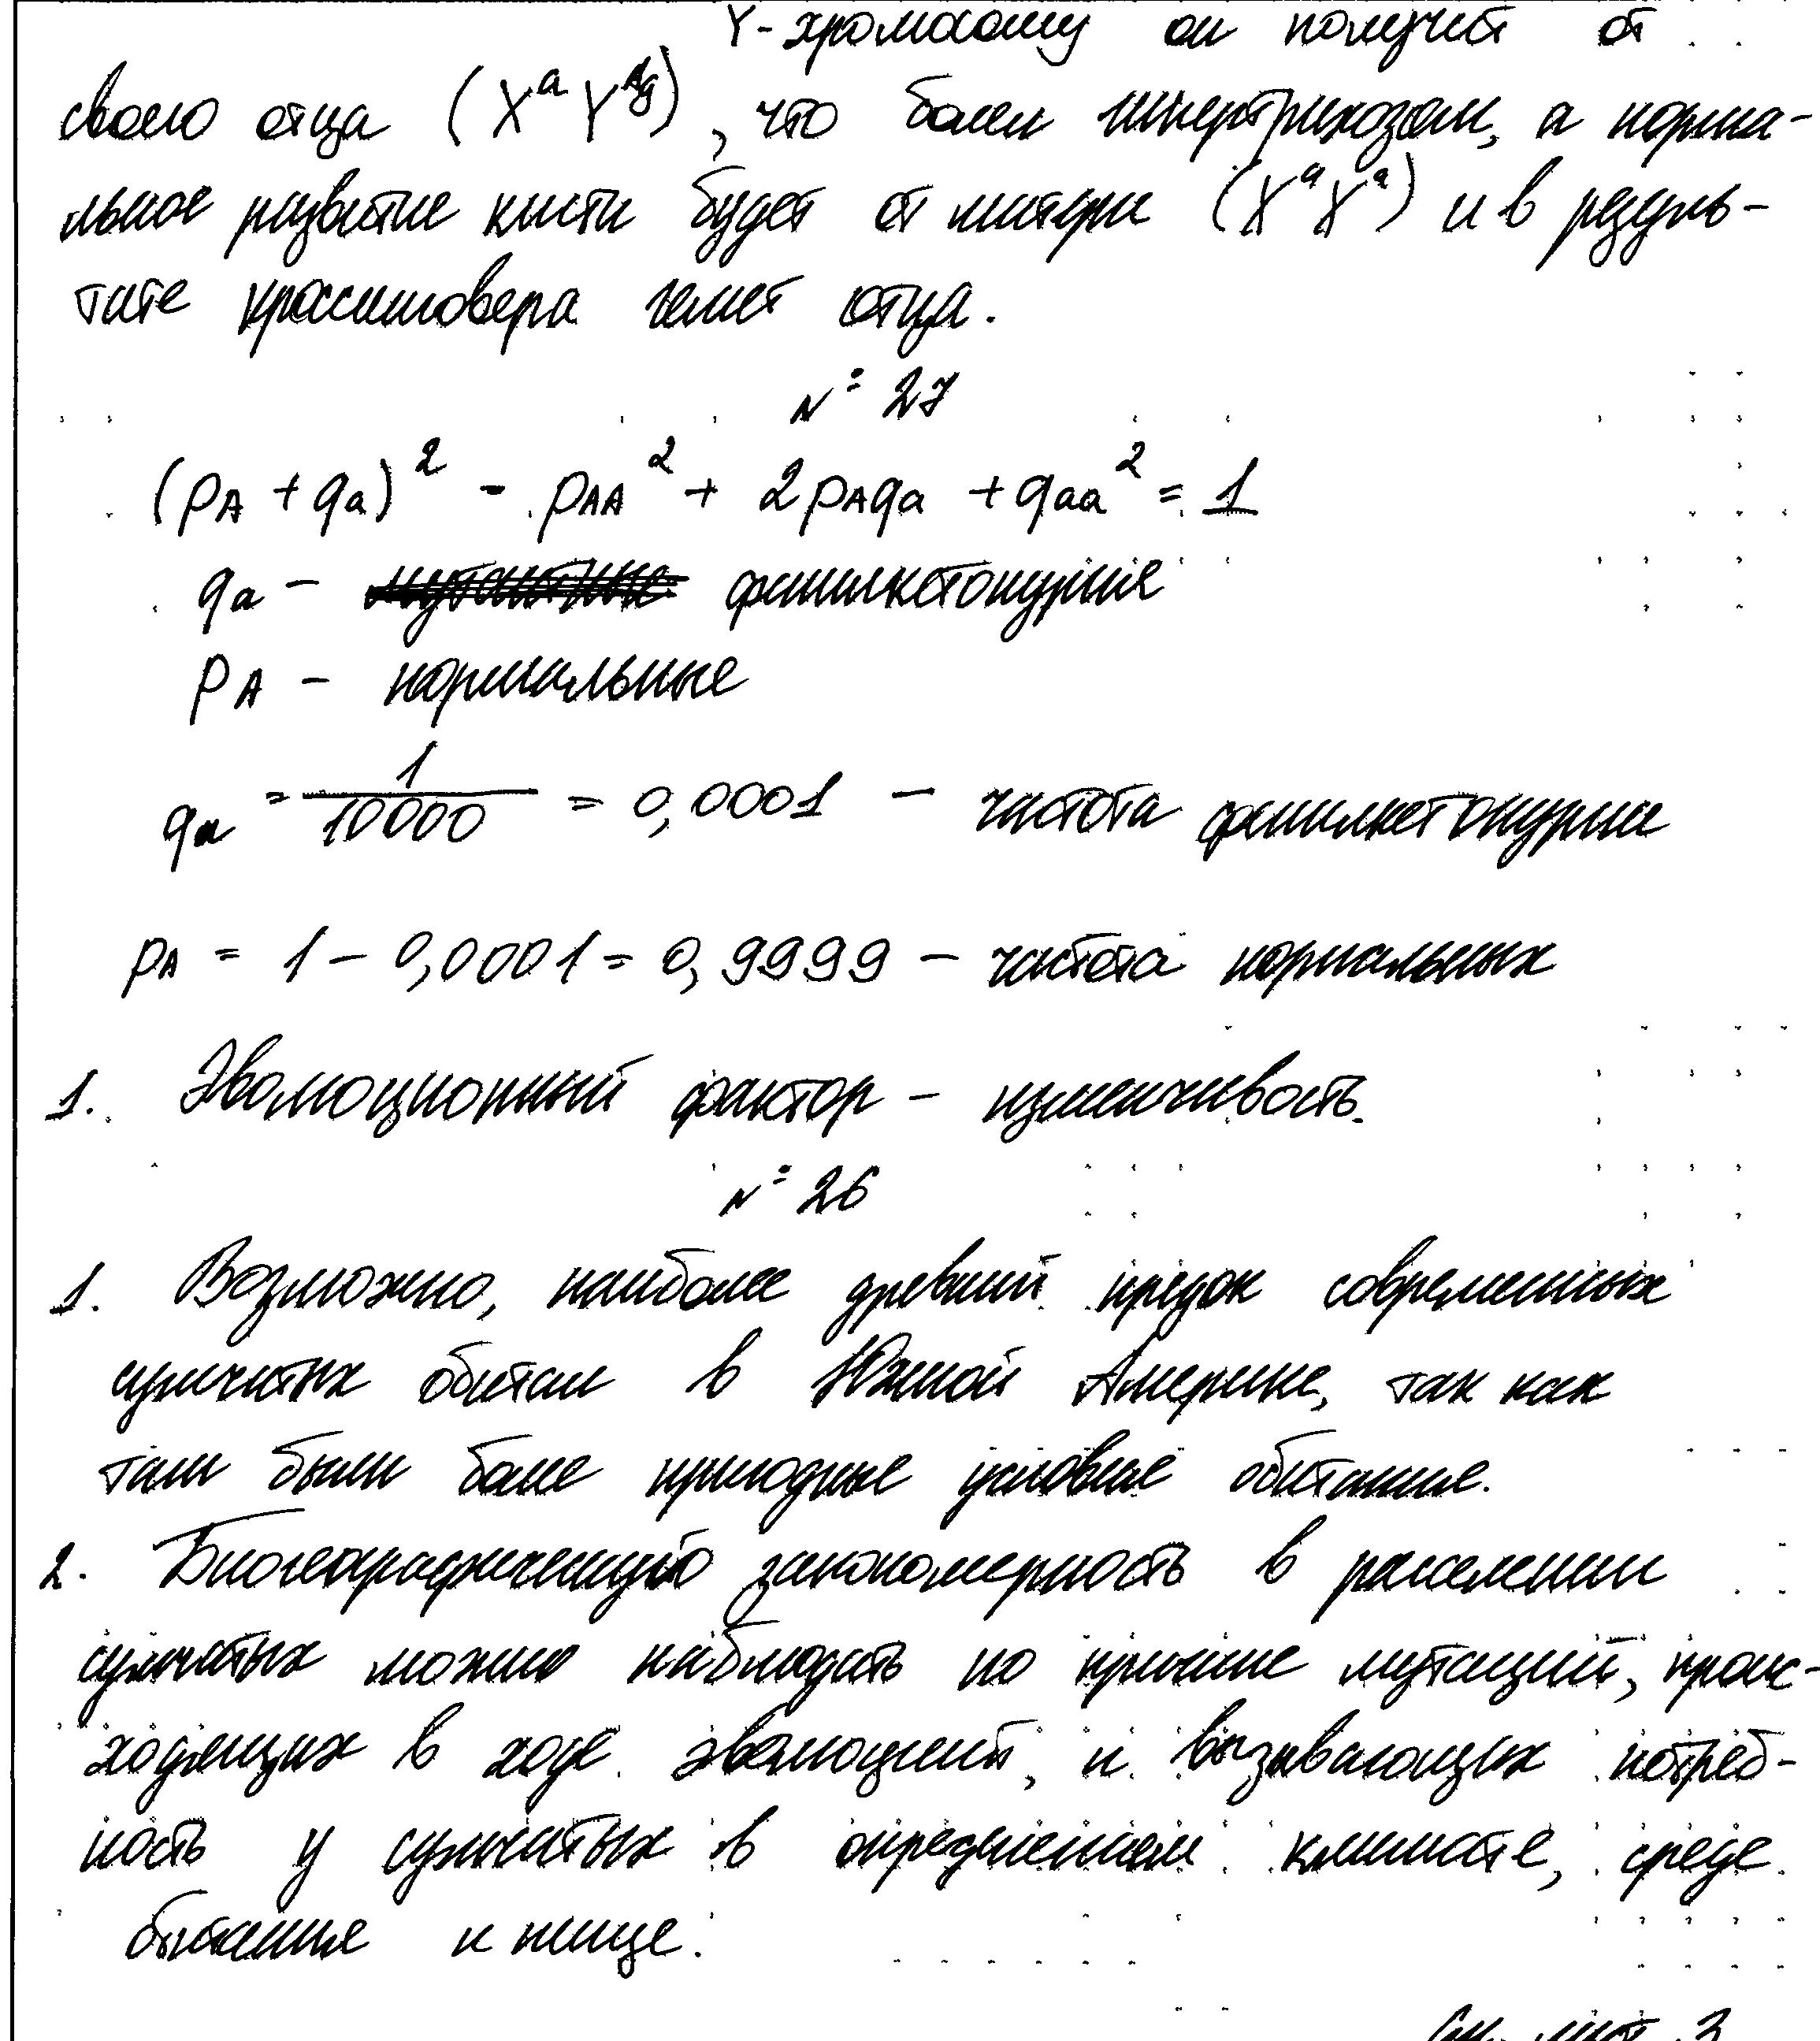 Y-хромосому он получит от
своего отца (XᵃYᴬᵍ), что болен гипертрихозом, а норма-
льное развитие кисти будет от матери (XᵃXᵃ) и в резуль-
тате кроссинговера гамет отца.
№ 27
(pA + qa)² - pAA² + 2pAqa + qaa² = 1
qa - фенилкетонурия
pA - нормальные
qa = 1/10000 = 0,0001 - частота фенилкетонурии
pA = 1 - 0,0001 = 0,9999 - частота нормальных
1. Эволюционный фактор - изменчивость.
№ 26
1. Возможно, наиболее древний предок современных
сумчатых обитал в Южной Америке, так как
там были более пригодные условия обитания.
2. Биогеографическую закономерность в расселении
сумчатых можно наблюдать по причине мутаций, проис-
ходящих в ходе эволюций, и вызывающих потреб-
ность у сумчатых в определенном климате, среде
обитания и пище.
См. лист 3